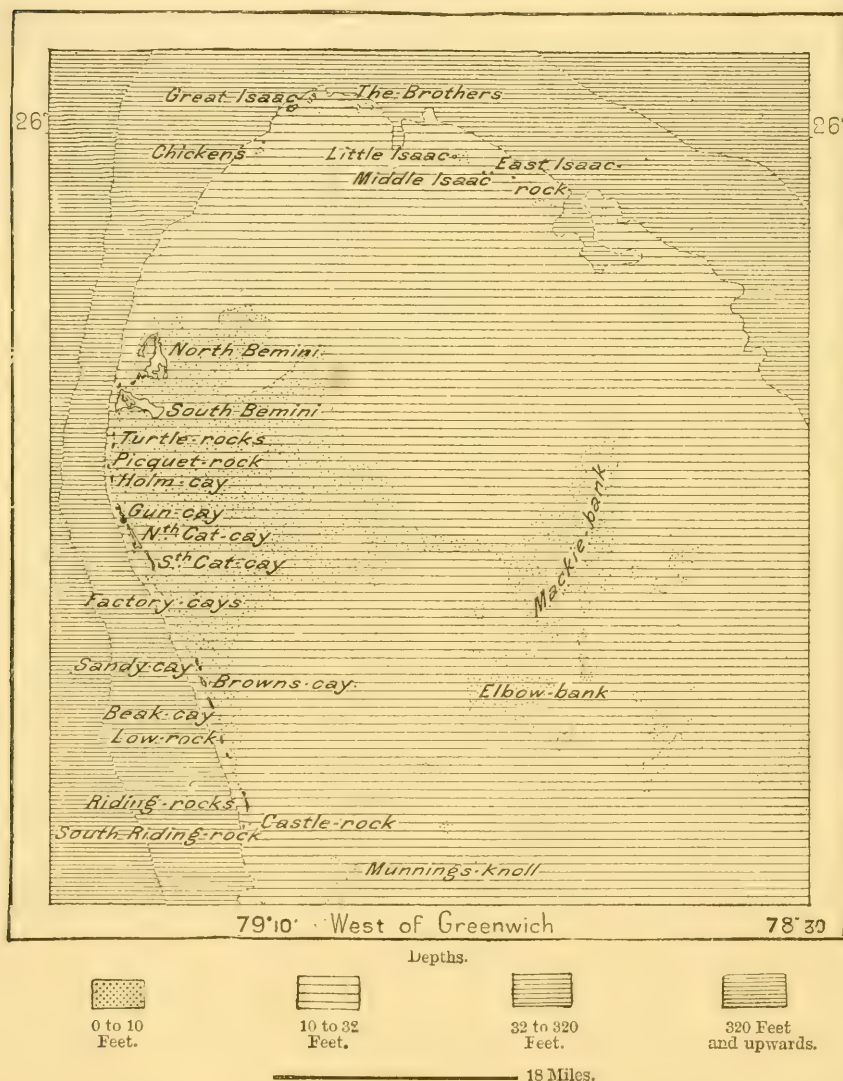 Great Isaac
The Brothers
26°
26°
Chickens
Little Isaac
East Isaac
Middle Isaac
rock
North Bemini
South Bemini
Turtle-rocks
Picquet-rock
Holm-cay
Gun-cay
Nth Cat-cay
Sth Cat-cay
Factory-cays
Mackie-bank
Sandy-cay
Browns-cay
Elbow-bank
Beak-cay
Low-rock
Riding-rocks
Castle-rock
South-Riding-rock
Munnings-knoll
79°10' West of Greenwich 78°30
Depths.
0 to 10
Feet.
10 to 32
Feet.
32 to 320
Feet.
320 Feet
and upwards.
18 Miles.